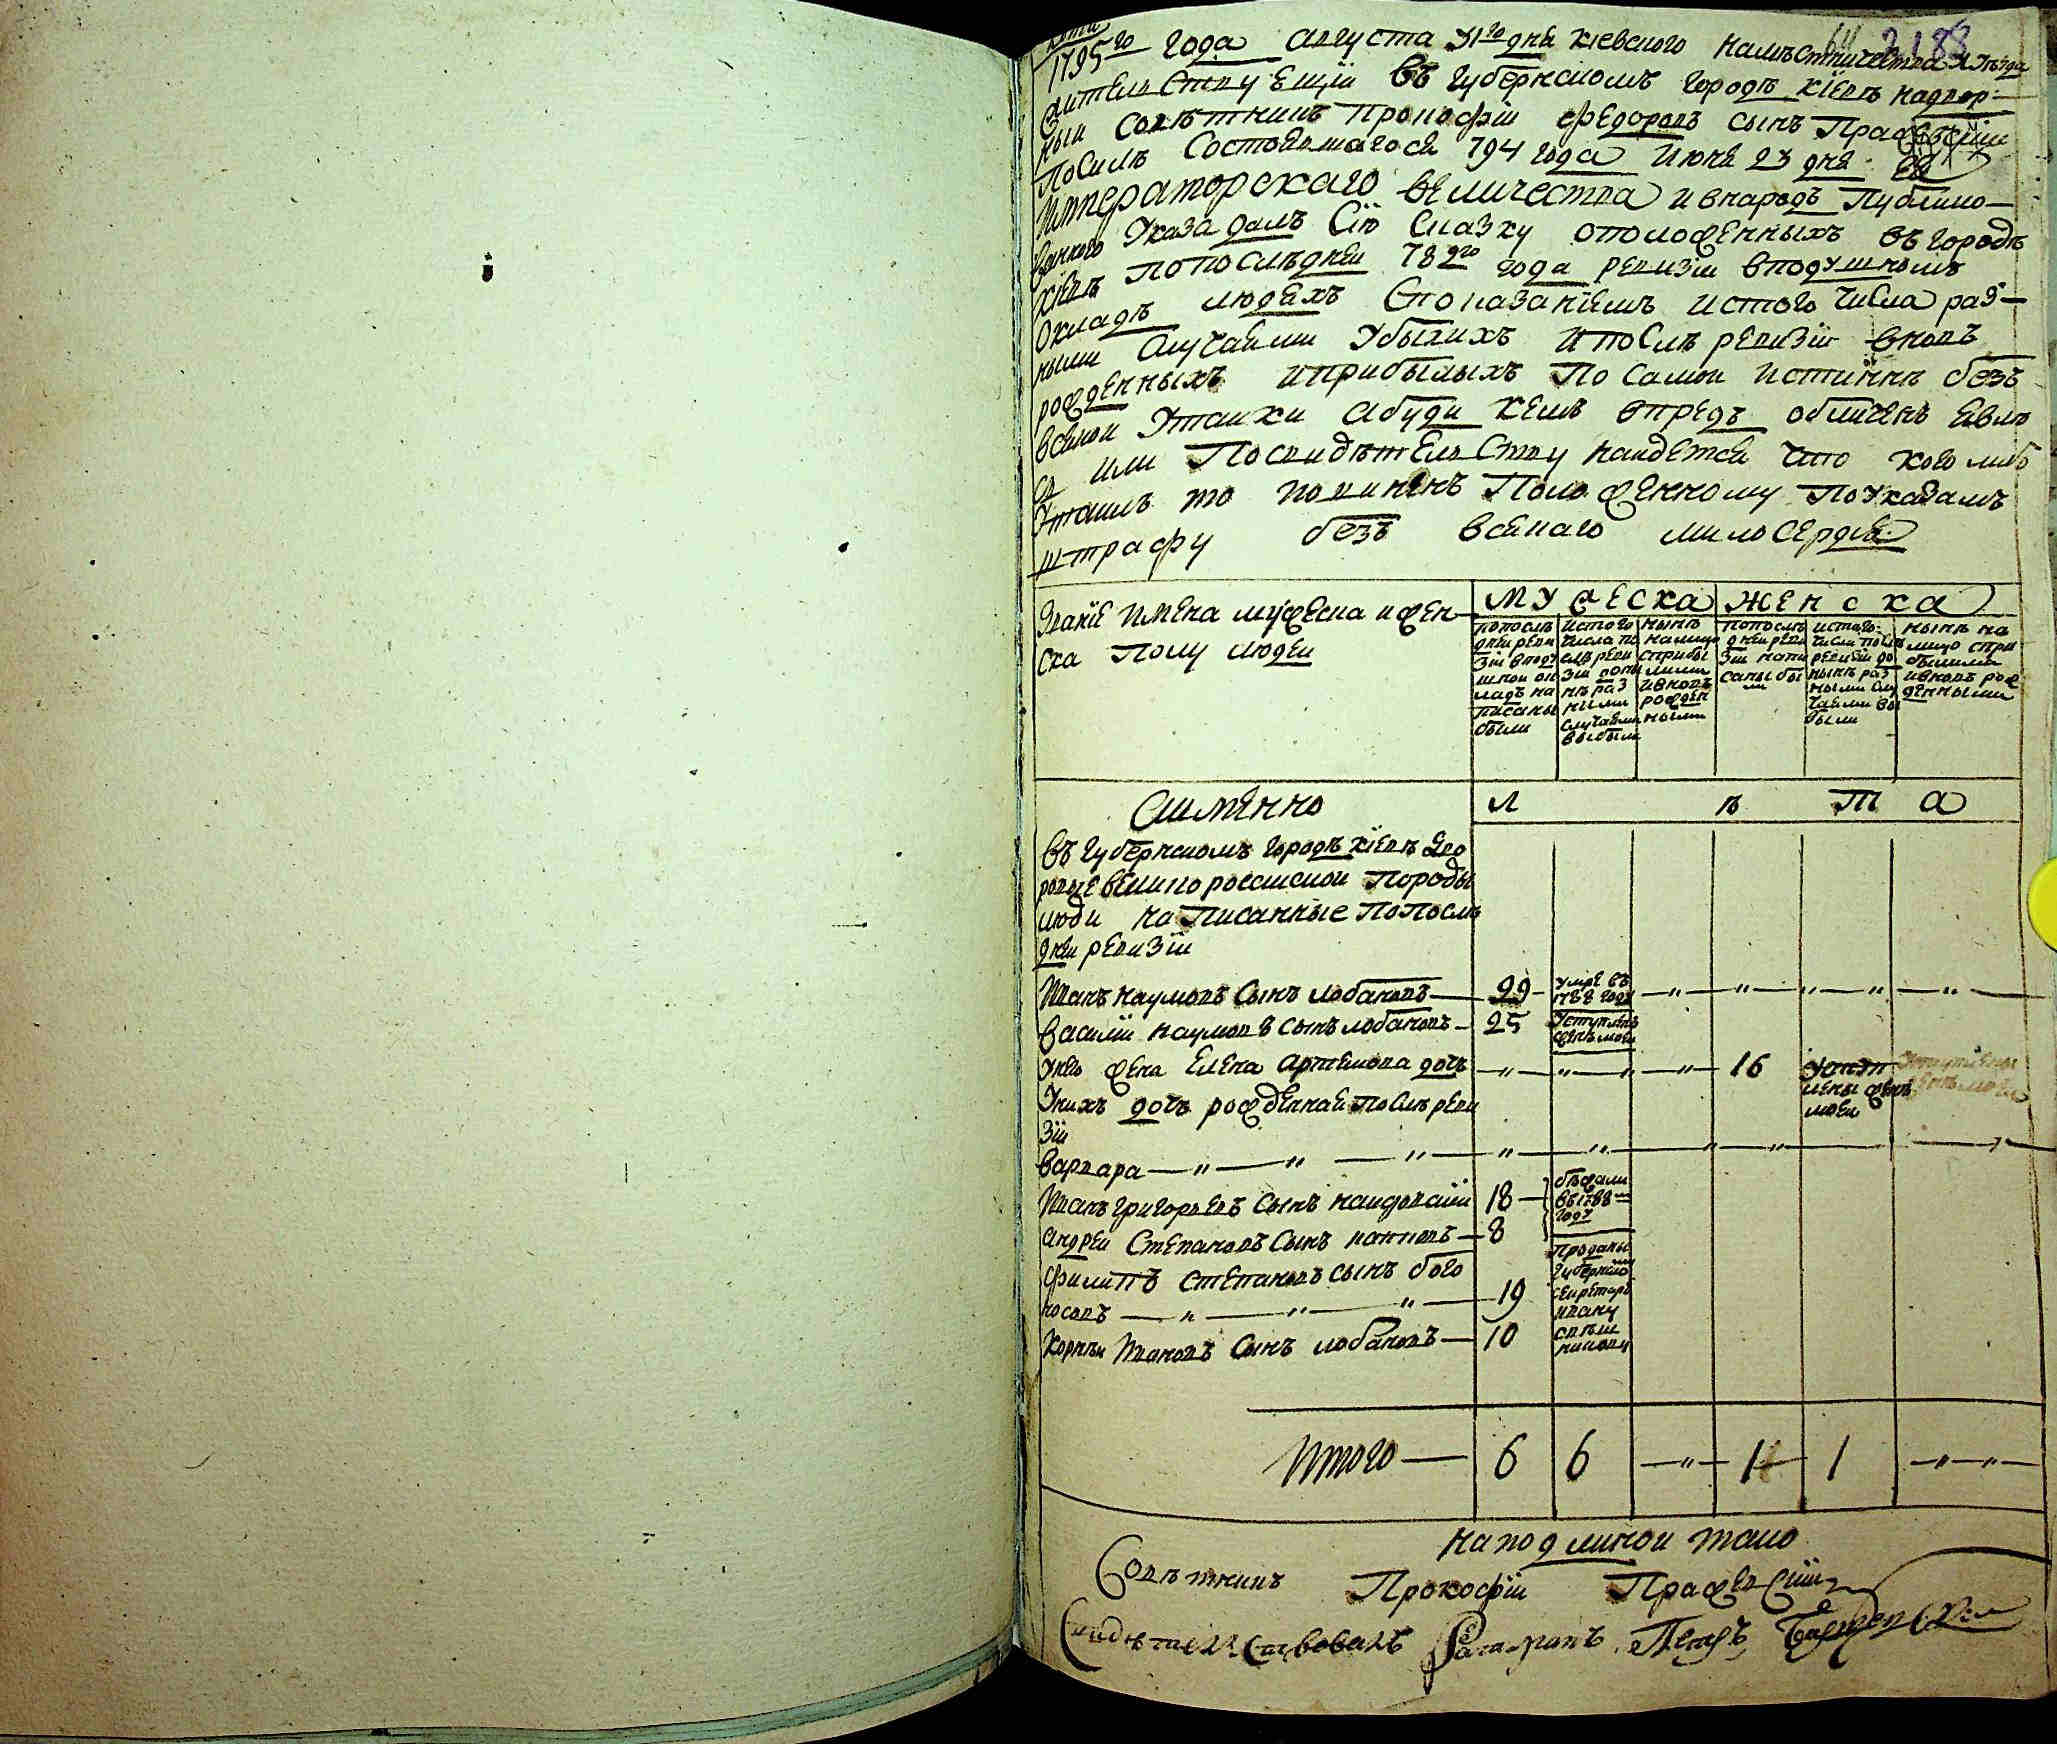 Копія
1795го года Августа 31го дня Киевского наместничества и уезда
жителствующій въ Губернскомъ городѣ Кіевѣ надвор-
ный советникъ Прокофій Федоровъ сынъ Пражевскій
По силѣ Состоявшагося 794 года июня 23 дня ея
Императорскаго величества и внародъ Публико-
ванного Указа далъ Сію Сказку о положенныхъ въ городѣ
Кіевѣ по последней 782го года ревизіи в подушномъ
Окладѣ людехъ С показаніемъ из того числа раз-
ными Случаями Убылихъ и послѣ ревизіи вновь
рожденныхъ и прибылыхъ По самой истиннѣ безъ
всякой Утайки А буди кемъ впредь обличенъ явлю
ся или По свидѣтелству найдется что кого либо
Утаилъ то повиненъ Положенному по указамъ
штрафу безъ всякаго милосердія
Званіе имена мужеска и жен-
ска полу людей
Мужеска Женска
по послѣ
дней реви
зіи в поду
шной ок
ладъ на
писаны
были
из того
числа по
слѣ реви
зіи по ны
нѣ раз
ными
случаями
выбыли
нынѣ
на лицо
с прибы
лыми
и вновь
рожден
ными
по послѣ
дней реви
зіи напи
саны бы
ли
из того
числа послѣ
ревизіи до
нынѣ раз
ными слу
чаями вы
были
нынѣ на
лицо с при
былыми
и вновь рож
денными
А имянно
Л ѣ т а
Въ Губернскомъ городѣ Кіевѣ дво
ровые великороссійской породы
люди написанные по послѣ
дней ревизіи
Иванъ Наумовъ Сынъ Лобановъ — 29 умре въ 1788 году — " — " — " — " —
Василій Наумовъ сынъ Лобановъ — 25 Уступленъ женѣ моей
У него жена Елена Артемова дочь — " — " — " — 16 Уступлены женѣ моей
У нихъ дочь рожденная послѣ реви
зіи
Варвара — " — " — " — " — " — " — " —
Иванъ Григорьевъ Сынъ 18 бѣжали въ 1788м году
Андрей Степановъ Сынъ — 8
Филипъ Степановъ сынъ Бого
носовъ — " — " — " — 19 Проданы губернскому секретарю Ивану
Корнѣй Ивановъ Сынъ Лобановъ — 10
Итого — 6 6 — " — 1 1 — " — " —
На подлиной тако
Советникъ Прокофій Пражевскій
Свидетелствовалъ Петръ